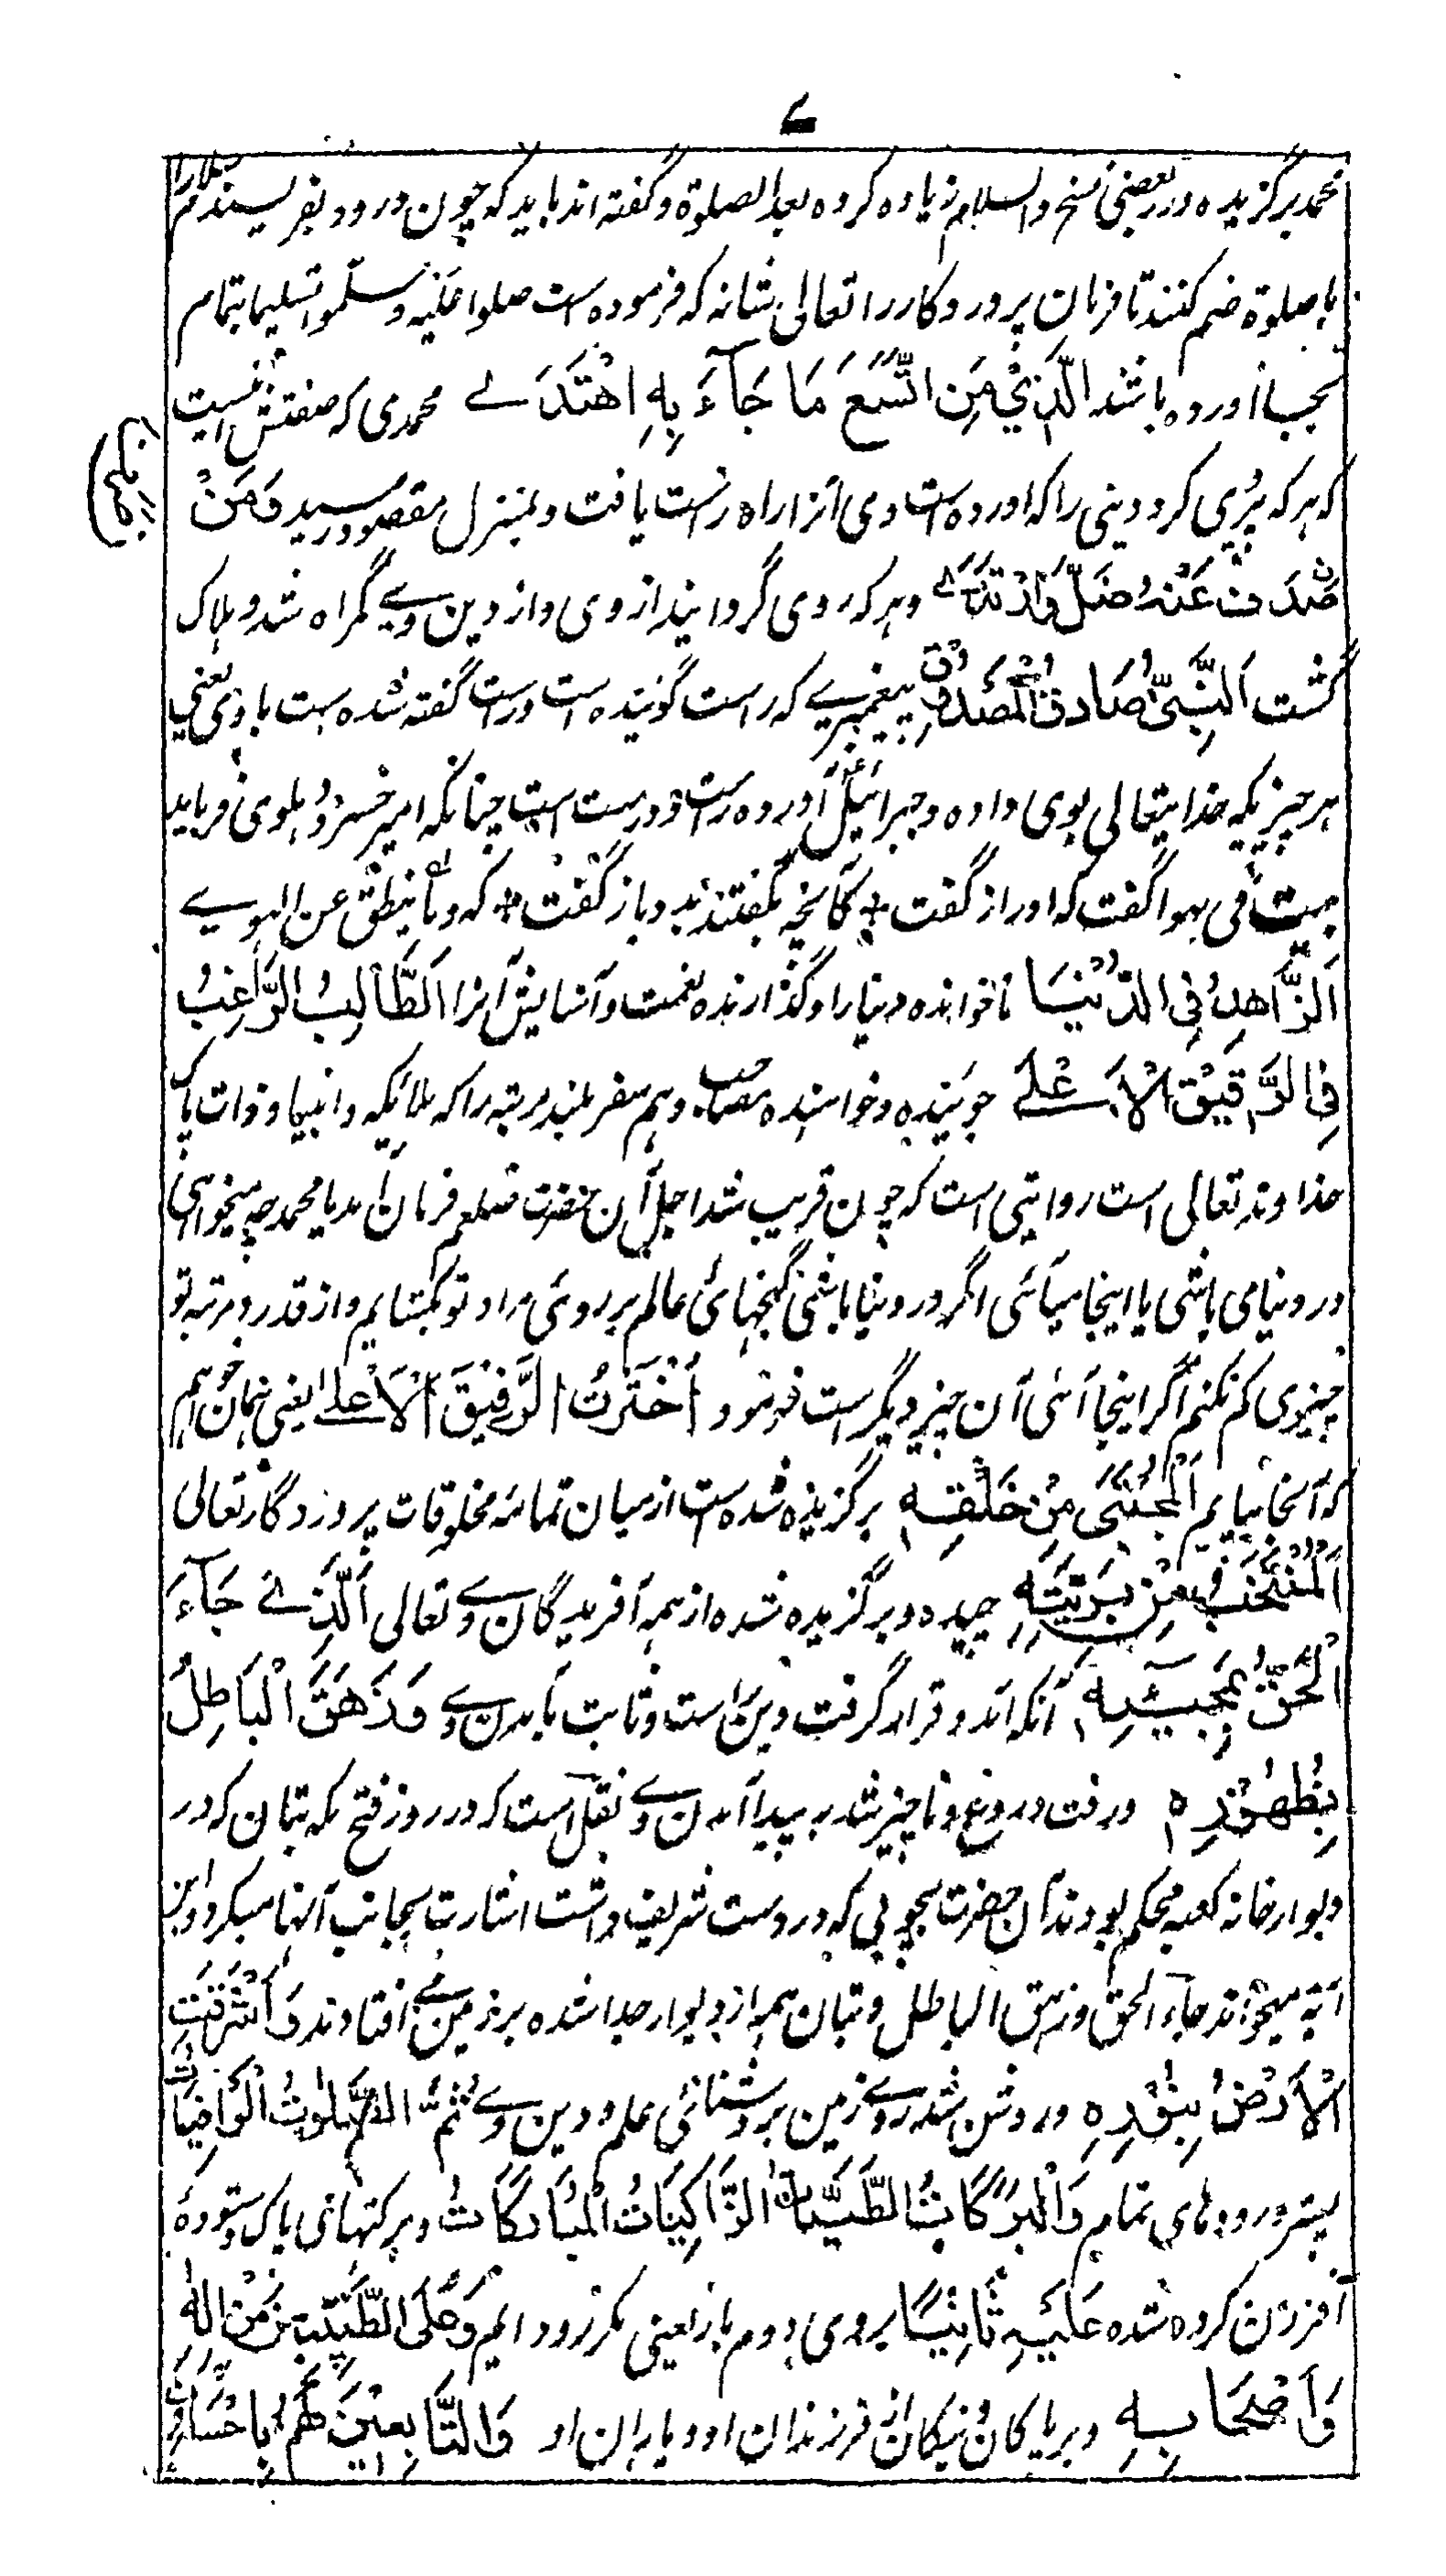 ۷
محمد برگزیده و در بعضی نسخ والسلام زیاده کرده بعد الصلوة و گفته اند باید که چون درود بفرستند سلام را
با صلوة ضم کنند تا فرمان پروردگار را تعالی شانه که فرموده است صلوا علیه وسلموا تسلیما بتمام
بجا آورده باشند الَّذِیْ مَنِ اتَّبَعَ مَا جَآءَ بِهِ اهْتَدَے محمدی که صفتش اینست
که هر که پیروی کرد دینی را که آورده است وی آنرا راه راست یافت و بمنزل مقصود رسید وَمَنْ
صَدَفَ عَنْهُ ضَلَّ وَارْتَدَے و هر که روی گردانید از وی و از دین وے گمراه شد و هلاک
گشت اَلنَّبِیُّ صَادِقُ الْمَصْدُوْقِ پیغمبرے که راست گوینده است و راست گفته شده است با وی یعنی
هر چیزیکه خدایتعالی بوی داده و جبرائیل آورده راست و درست است چنانکه امیر خسرو دهلوی فرماید
بیت فی بهوا گفت که او راز گفت * کآنچه بگفتند بدو باز گفت * که وما ینطق عن الهوے
اَلزَّاهِدُ فِی الدُّنْیَا ناخواهنده دنیا را و گذارنده نعمت و آسایش آنرا اَلطَّالِبُ الرَّاغِبُ
فِی الرَّفِیْقِ الْاَعْلٰے جوینده و خواهنده مصاحب و هم سفر بلند مرتبه را که ملائکه و انبیا و ذات پاک
خداوند تعالی است روایتی است که چون قریب شد اجل آن حضرت صلعم فرمان آمد یا محمد چه میخواهی
در دنیا می باشی یا اینجا میآئی اگر در دنیا باشی گنجهائ عالم بر روئ مراد تو بکشایم و از قدر و مرتبه تو
چیزی کم نکنم اگر اینجا آئی آن چیز دیگر است فرمود اَخْتَرْتُ الرَّفِیْقَ الْاَعْلٰی یعنی همان خواهم
که آنجا بیایم اَلْمُجْتَبٰی مِنْ خَلْقِهٖ برگزیده شده است از میان تمامه مخلوقات پروردگار تعالی
اَلْمُنْتَخَبُ مِنْ بَرِیَّتِهٖ چیده و برگزیده شده از همه آفریدگان وے تعالی اَلَّذِیْ جَآءَ
الْحَقُّ بِمَجِیْئِهٖ آنکه آمد و قرار گرفت دین راست و ثابت بآمدن وے وَزَهَقَ الْبَاطِلُ
بِظُهُوْرِهٖ و رفت دروغ و ناچیز شد به پیدا آمدن وے نقل است که در روز فتح مکه بتان که در
دیوار خانه کعبه محکم بودند آن حضرت بچوبی که در دست شریف داشت اشارت بجانب آنها میکرد و این
آیه میخواند جاء الحق وزهق الباطل و بتان همه از دیوار جدا شده بر زمین افتادند وَاَشْرَقَتِ
الْاَرْضُ بِنُوْرِهٖ و روشن شد روے زمین بروشنائی علم و دین وے ثُمَّ الصَّلٰوتُ الْوَافِیَاتُ
پستر درودهای تمام وَالْبَرَکَاتُ الطَّیِّبَاتُ الزَّاکِیَاتُ الْمُبَارَکَاتُ و برکتهائی پاک ستوده
افزون کرده شده عَلَیْهِ ثَانِیًا بروی دوم بار یعنی مکرر و دایم وَعَلَی الطَّیِّبِیْنَ مِنْ اٰلِهٖ
وَاَصْحَابِهٖ و بر پاکان و نیکان از فرزندان او و یاران او وَالتَّابِعِیْنَ لَهُمْ بِاِحْسَانٍ